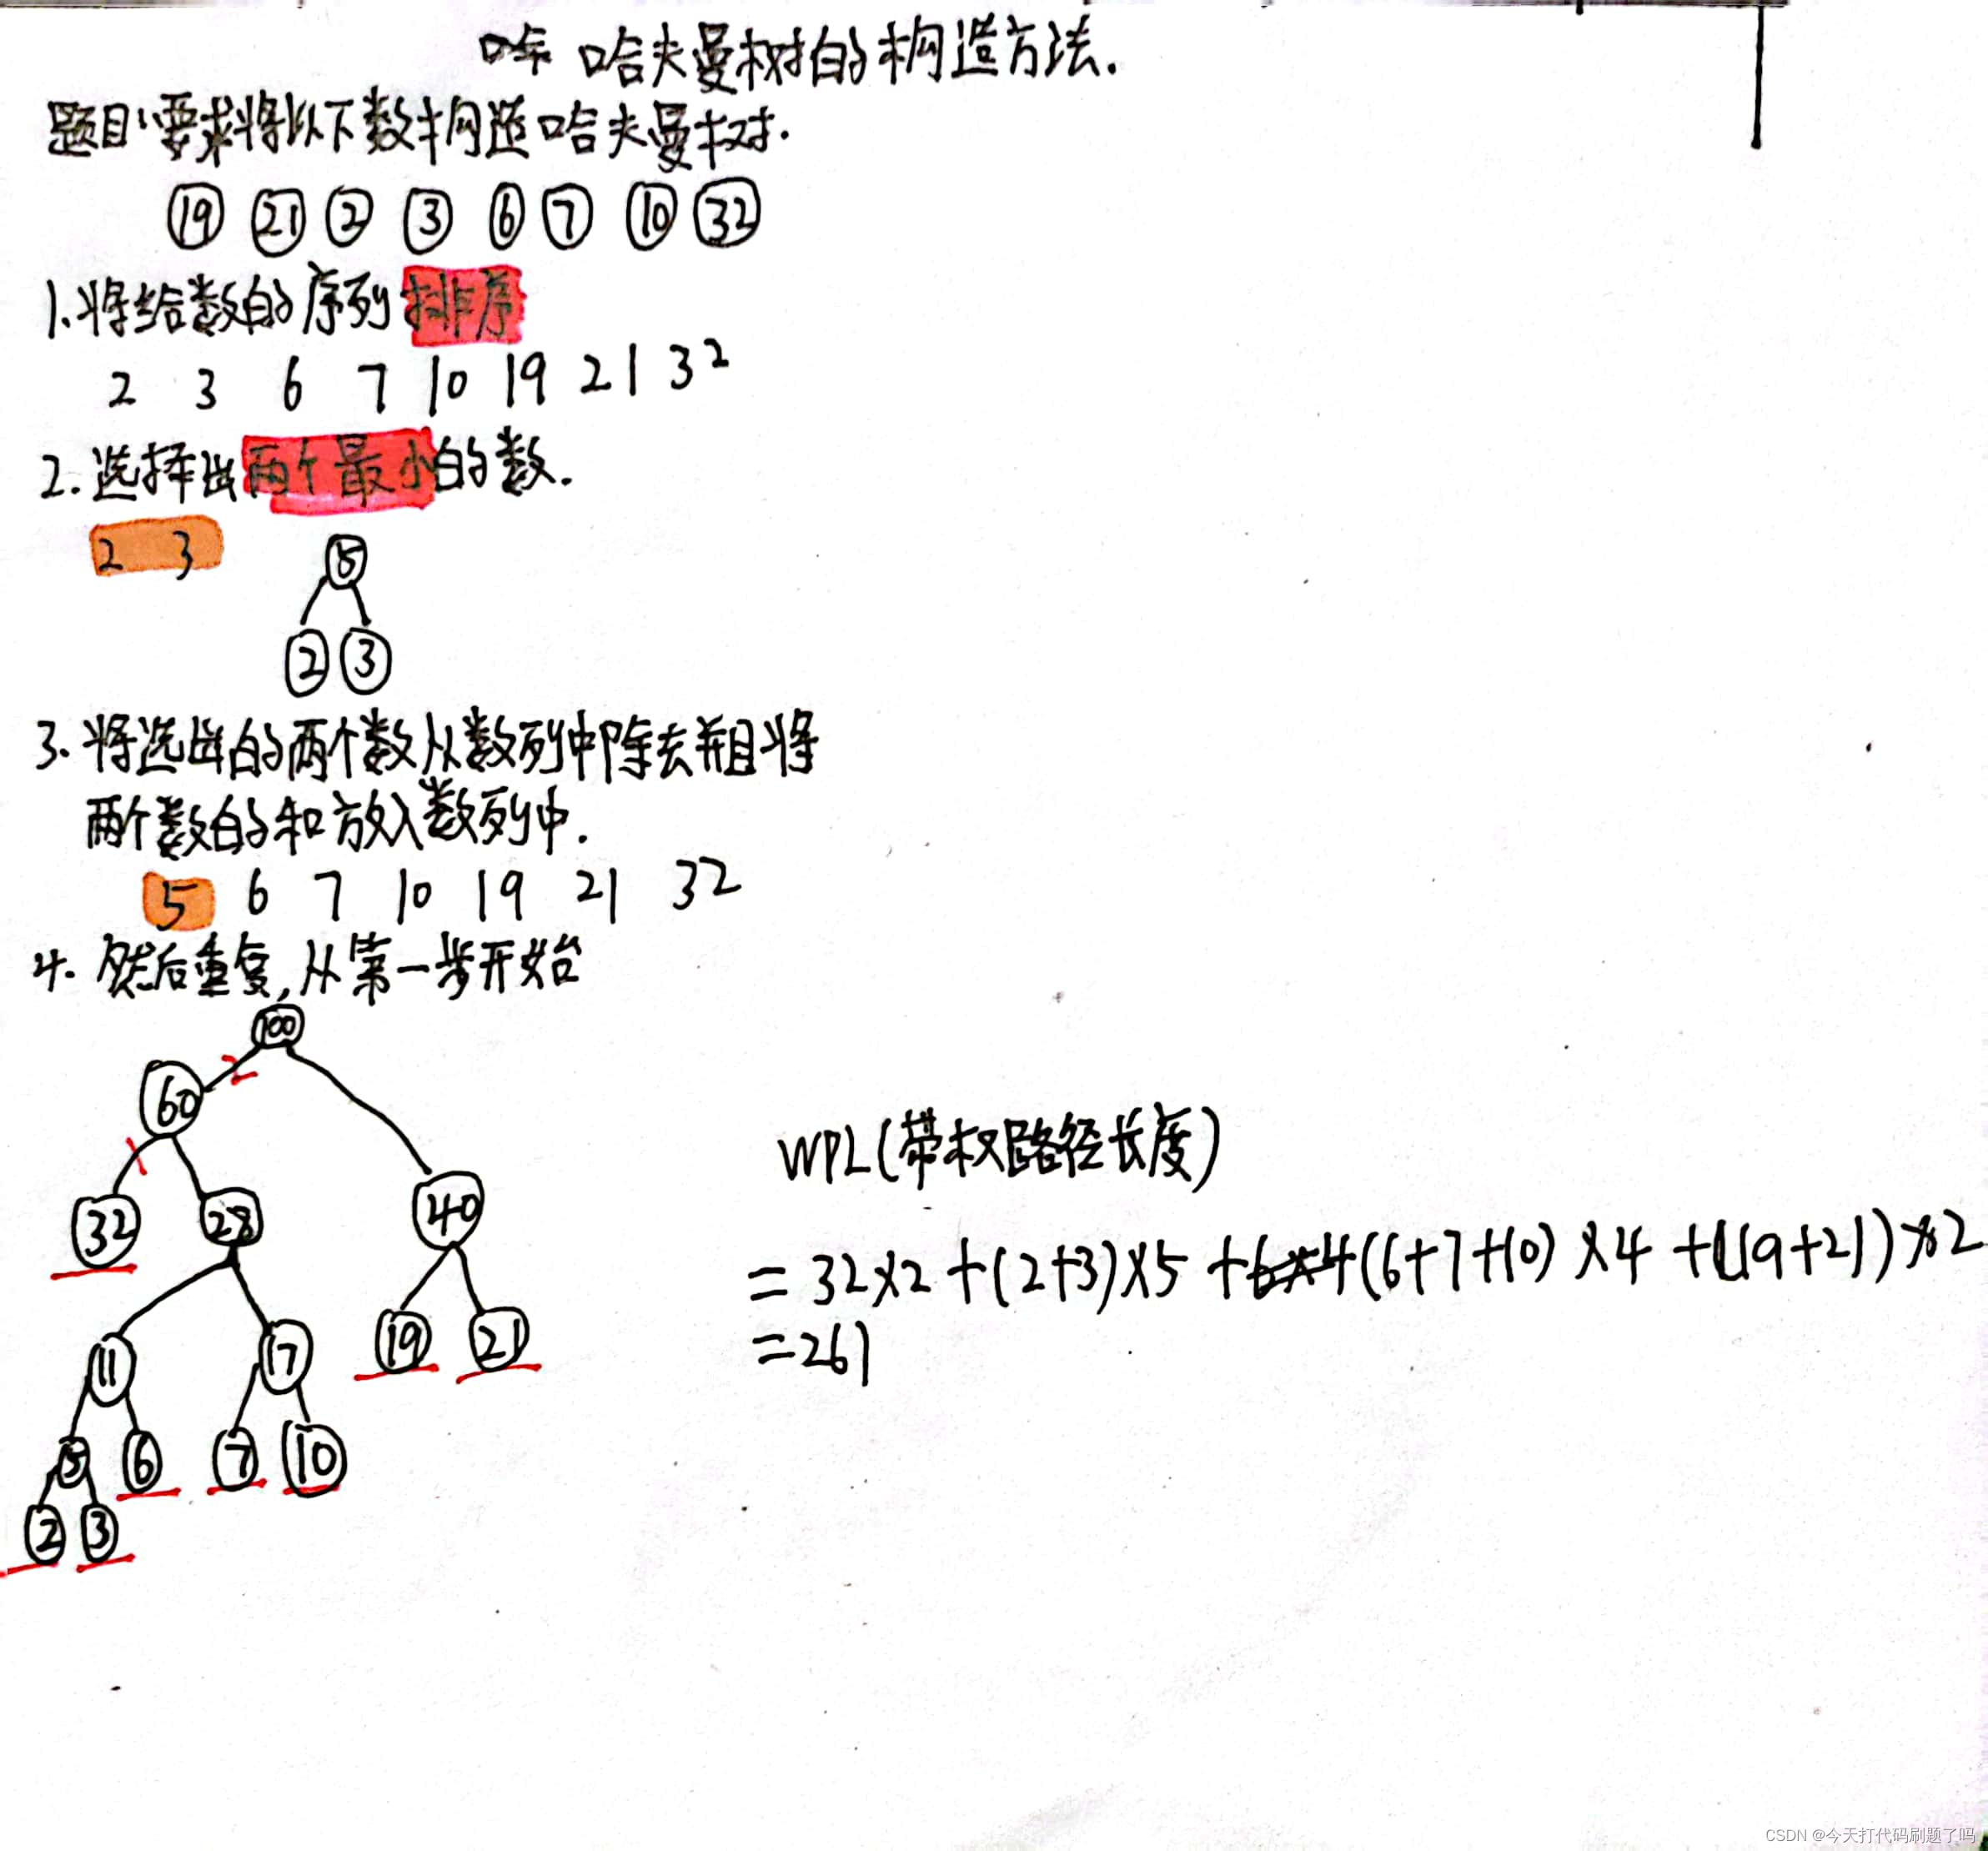 哈夫曼树的构造方法.
题目:要求将以下数构造哈夫曼树.
19 21 2 3 6 7 10 32
1.将给数的序列排序
2 3 6 7 10 19 21 32
2.选择出两个最小的数.
2 3
5
2 3
3.将选出的两个数从数列中除去并且将
两个数的和放入数列中.
5 6 7 10 19 21 32
4.然后重复,从第一步开始
100
60
32 28 40
11 17 19 21
5 6 7 10
2 3
WPL(带权路径长度)
=32×2+(2+3)×5+(6+7+10)×4+(19+21)×2
=261
CSDN @今天打代码刷题了吗